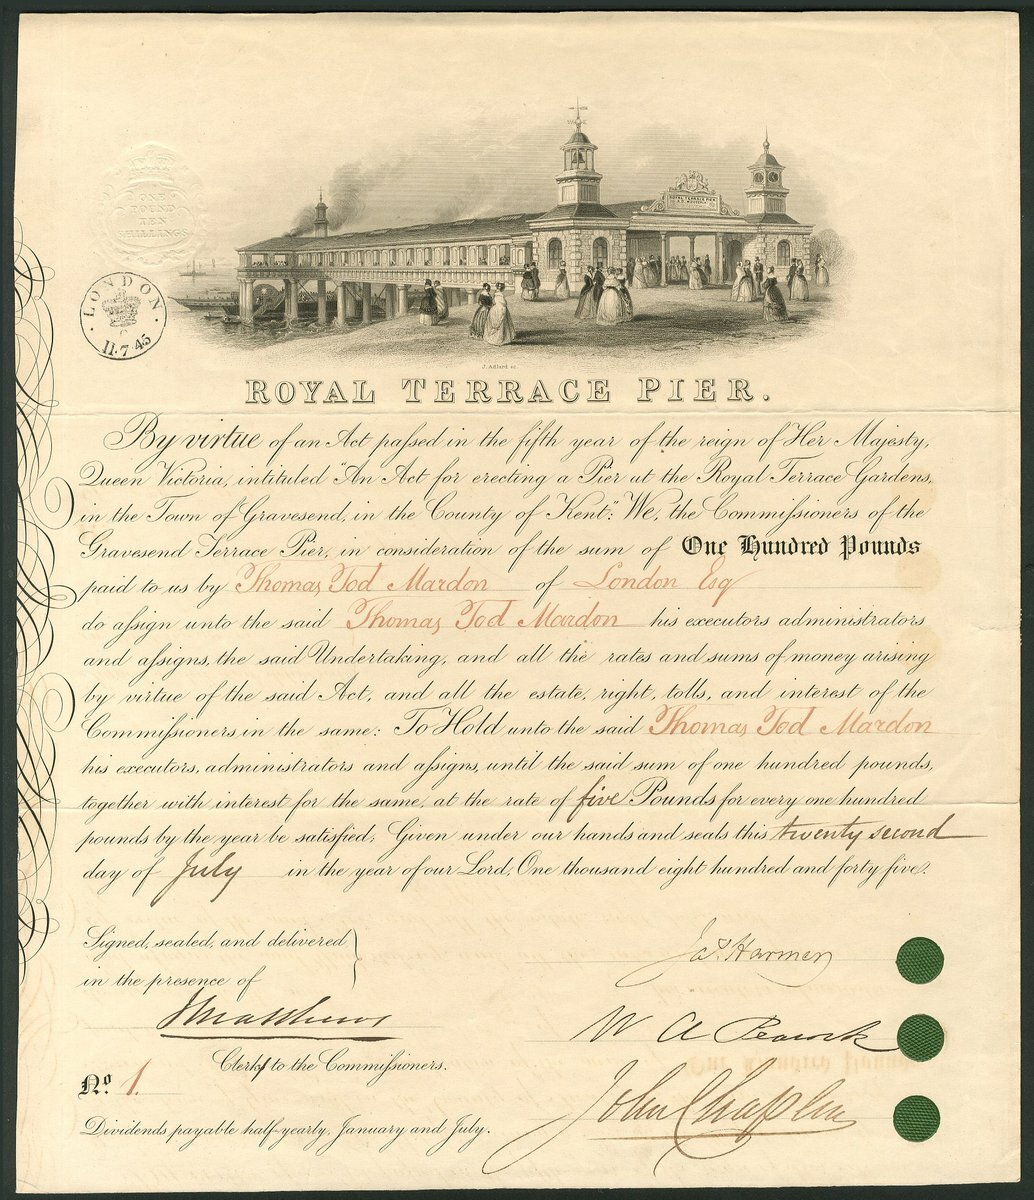 ONE
POUND
TEN
SHILLINGS
LONDON
C
11·7·45
ROYAL TERRACE PIER
J. Adlard sc.
ROYAL TERRACE PIER.
By virtue of an Act passed in the fifth year of the reign of Her Majesty,
Queen Victoria, intituled "An Act for erecting a Pier at the Royal Terrace Gardens,
in the Town of Gravesend, in the County of Kent": We, the Commissioners of the
Gravesend Terrace Pier, in consideration of the sum of One Hundred Pounds
paid to us by Thomas Tod Mardon of London Esq
do assign unto the said Thomas Tod Mardon his executors administrators
and assigns, the said Undertaking, and all the rates and sums of money arising
by virtue of the said Act, and all the estate, right, tolls, and interest of the
Commissioners in the same: To Hold unto the said Thomas Tod Mardon
his executors, administrators and assigns, until the said sum of one hundred pounds,
together with interest for the same, at the rate of five Pounds for every one hundred
pounds by the year be satisfied, Given under our hands and seals this twenty second
day of July in the year of our Lord, One thousand eight hundred and forty five.
Signed, sealed, and delivered
in the presence of
Jas. Harmer
J Matthews
W A Peacock
Clerk to the Commissioners.
No. 1.
John Chaplin
Dividends payable half-yearly, January and July.